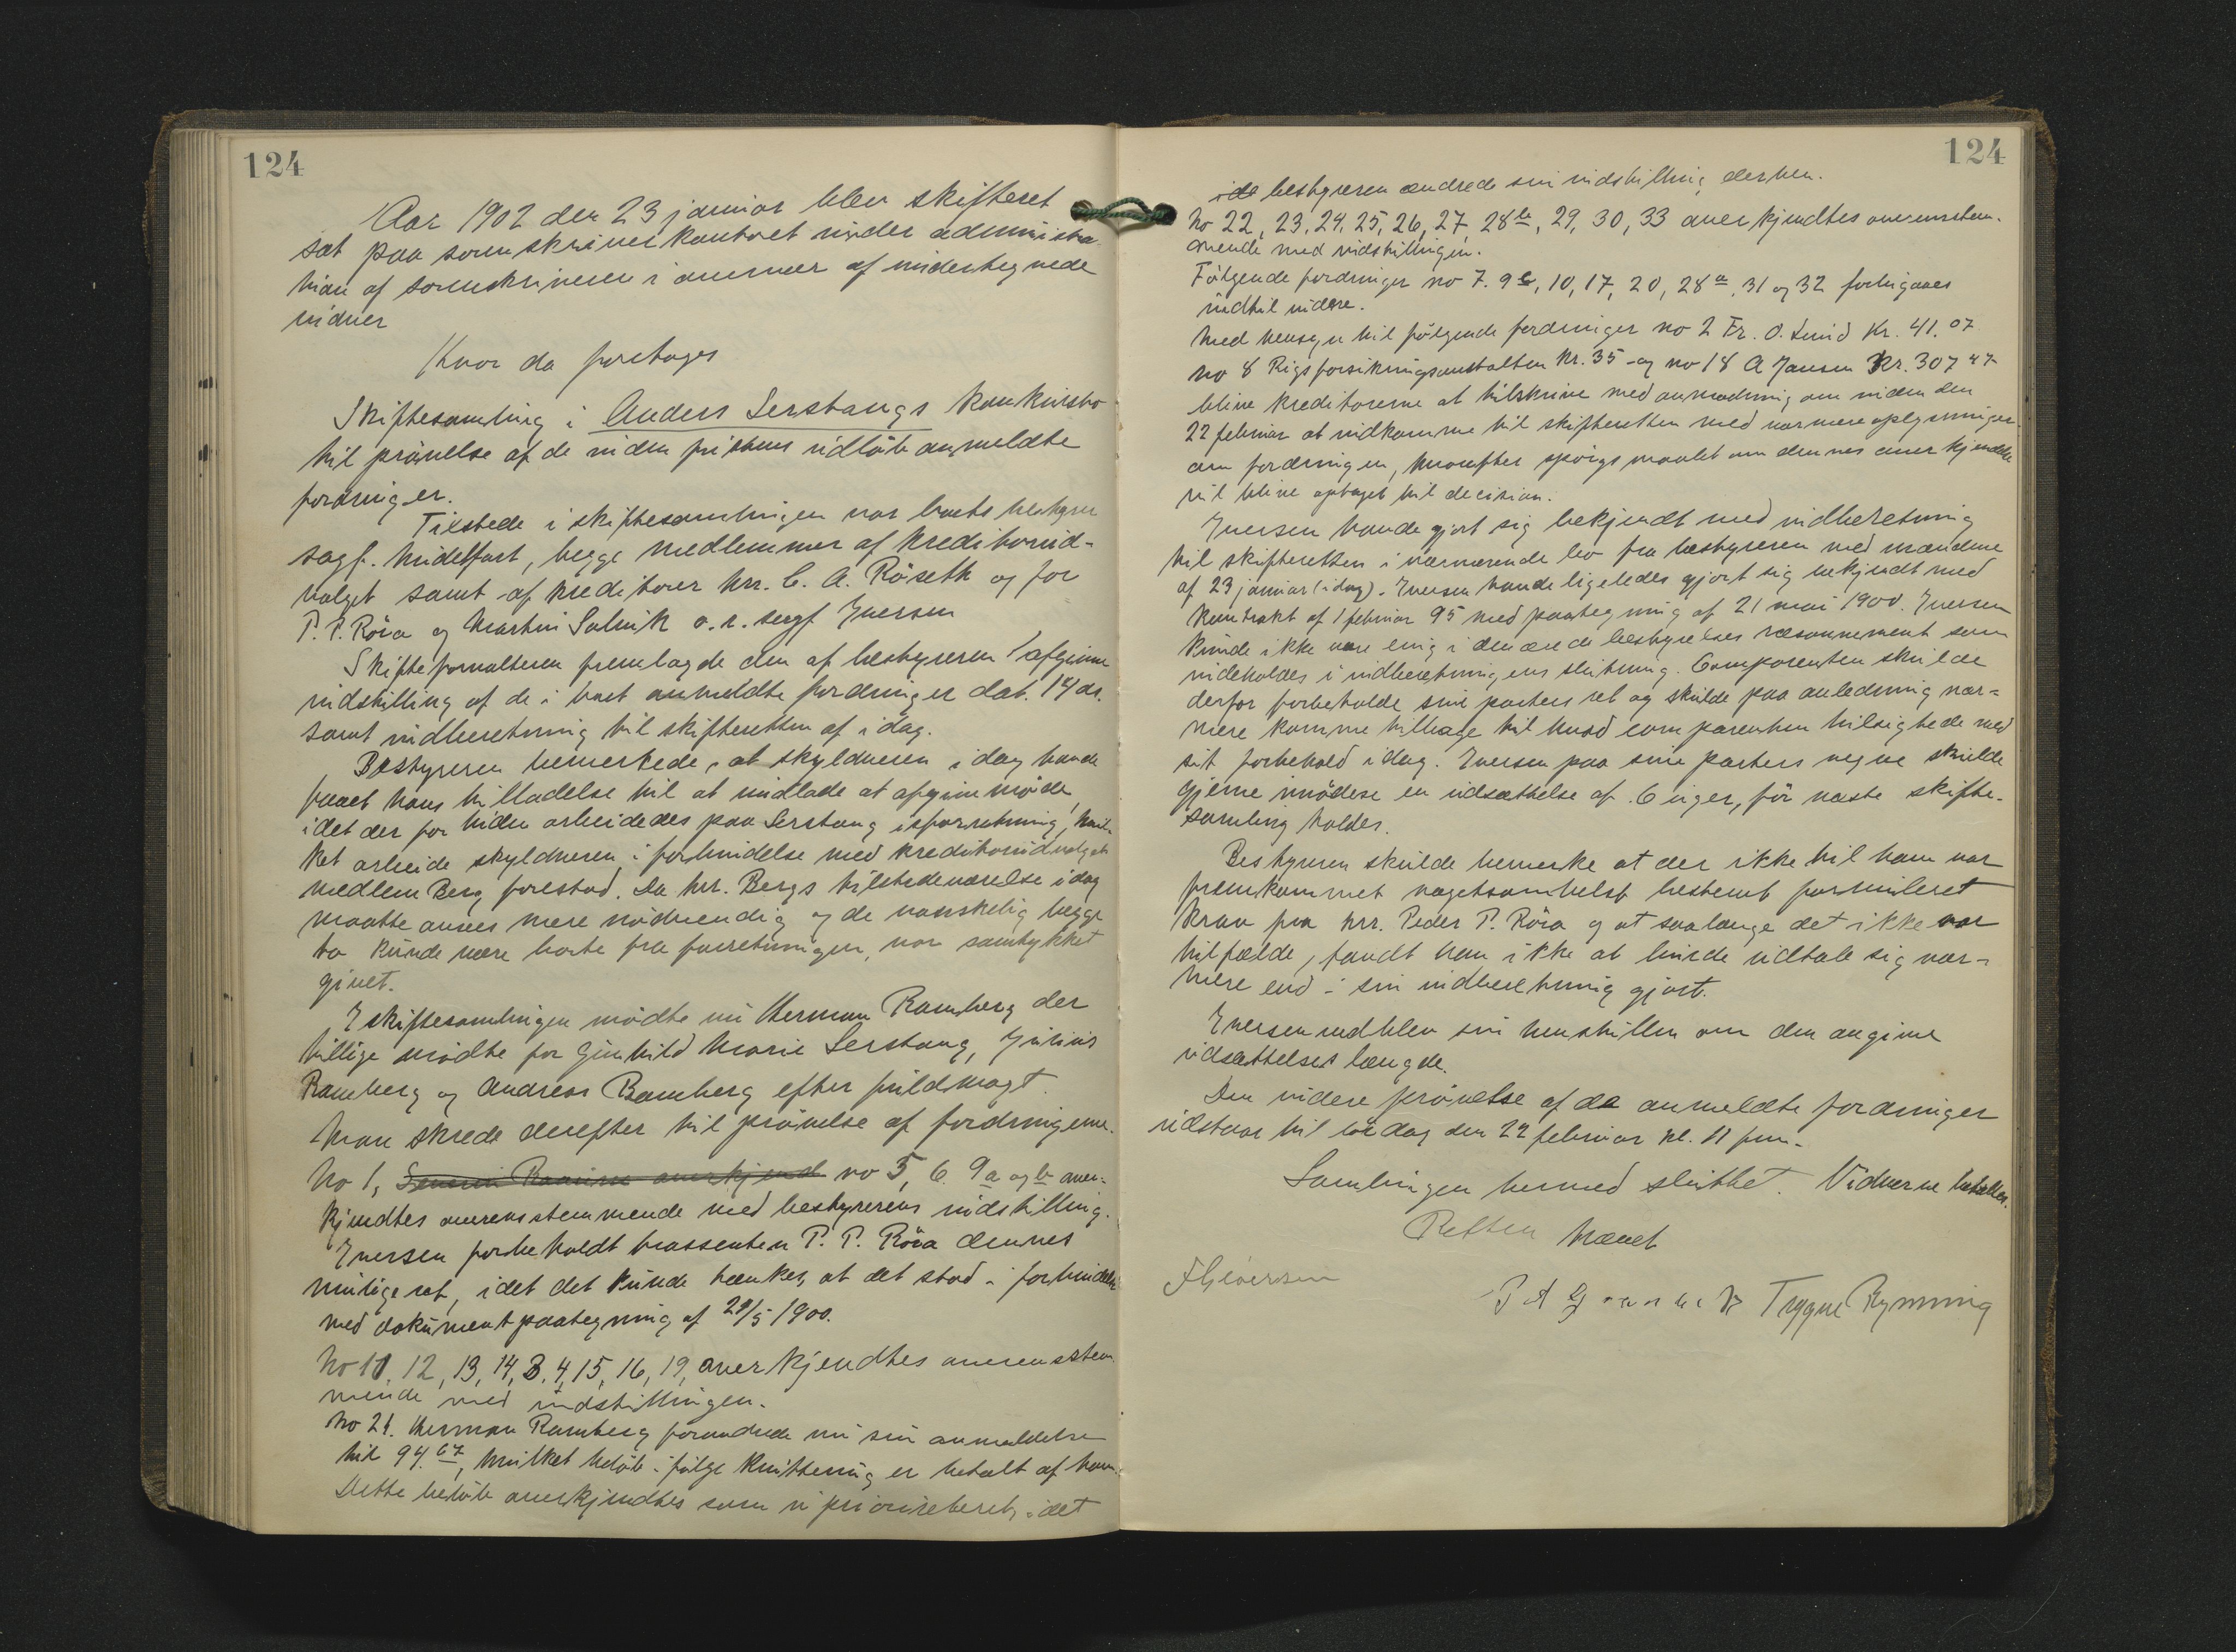 124
Aar 1902 den 23 januar blev skifteret
sat paa sorenskriverkontoret under administra-
tion af sorenskriveren i overvær af undertegnede
vidner
Hvor da foretoges
Skiftesamling i Anders Serstangs konkursbo
til prøvelse af de inden fristens udløb anmeldte
fordringer.
Tilstede i skiftesamlingen var boets bestyrer
sagf. Midelfart, begge medlemmer af kreditorud-
valget samt af kreditorer hrr. C. A. Röseth og for
P. P. Röra og Martin Solvik o. r. sagf Iversen
Skifteforvalteren fremlagde den af bestyreren afgivne
indstilling af de i boet anmeldte fordringer dat. 14 ds.
samt indberetning til skifteretten af idag.
Bestyreren bemerkede, at skyldneren idag havde
faaet hans tilladelse til at undlade at afgive møde,
idet der for tiden arbeidedes paa Serstang isforretning, hvil-
ket arbeide skyldneren i forbindelse med kreditorudvalgets
medlem Berg forestod. Da hrr. Bergs tilstedeværelse idag
maatte ansees mere nødvendig og de vanskelig begge
to kunde være borte fra forretningen, var samtykket
givet.
I skiftesamlingen mødte nu Herman Ramberg der
tillige mødte for Gunhild Marie Serstang, Julius
Ramberg og Andreas Ramberg efter fuldmagt.
Man skred derefter til prøvelse af fordringerne.
No 1, no 5, 6. 9a og b aner-
kjendtes overensstemmende med bestyrerens indstilling.
Iversen forbeholdt trassenten P. P. Röra dennes
mulige ret, idet det kunde tænkes, at det stod i forbindelse
med dokumentpaategning af 21/5 1900.
No 11, 12, 13, 14, 3, 4, 15, 16, 19, anerkjendtes overensstem-
mende med indstillingen.
No 21. Herman Ramberg forandrede nu sin anmeldelse
til 94.67, hvilket beløb ifølge kvittering er betalt af ham.
Dette beløb anerkjendtes som uprioriteret, idet
124
bestyreren ændrede sin indstilling derhen.
No 22, 23, 24, 25, 26, 27, 28b, 29, 30, 33 anerkjendtes overensstem-
mende med indstillingen.
Følgende fordringer no 7. 9c, 10, 17, 20, 28a, 31 og 32 forbigaaes
indtil videre.
Med hensyn til følgende fordringer no 2 Fr. O. Lund Kr. 41.07
no 8 Rigsforsikringsanstalten kr. 35 - og no 18 A Jansen Kr. 307 47
blive kreditorerne at tilskrive med anmodning om inden den
22 februar at indkomme til skifteretten med nærmere oplysninger
om fordringen, hvorefter spørgsmaalet om dennes anerkjendelse
vil blive optaget til decision.
Iversen havde gjort sig bekjendt med indberetning
til skifteretten i nærværende bo fra bestyreren med
af 23 januar (idag). Iversen havde ligeledes gjort sig bekjendt med
kontrakt af 1 februar 95 med paategning af 21 mai 1900. Iversen
kunde ikke være enig i den ærede bestyrelses ræsonnement som
indeholdes i indberetningens slutning. Comparenten skulde
derfor forbeholde sine parters ret og skulde paa anledning nær-
mere komme tilbage til hvad comparenten tilsigtede med
sit forbehold idag. Iversen paa sine parters vegne skulde
gjerne imødese en udsættelse af 6 uger, før næste skifte-
samling holdes.
Bestyreren skulde bemerke at der ikke til ham var
fremkommet nogetsomhelst bestemt formuleret
krav fra hrr. Peder P. Röra og at saalænge det ikke var
tilfælde, fandt han ikke at burde udtale sig nær-
mere end i sin indberetning gjort.
Iversen vedblev sin henstillen om den angivne
udsættelses længde.
Den videre prøvelse af de anmeldte fordringer
udstaar til lørdag den 22 februar kl. 11 fm.
Samlingen hermed sluttet. Vidnerne betaltes.
Retten hævet
Trygve Rynning